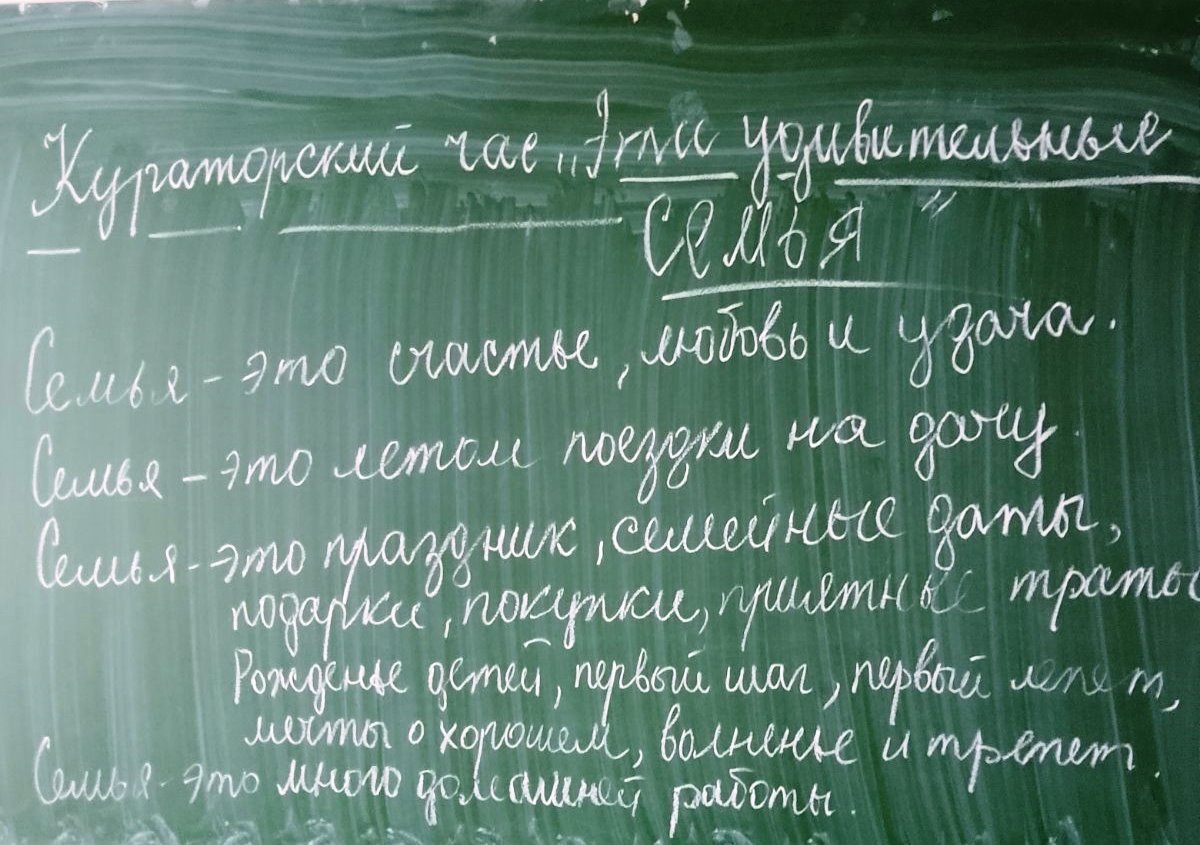 Кураторский час „Эти удивительные
семья"
Семья - это счастье, любовь и удача.
Семья - это летом поездки на дачу.
Семья - это праздник, семейные даты,
подарки, покупки, приятные траты
Рожденье детей, первый шаг, первый лепет,
мечты о хорошем, волненье и трепет.
Семья - это много домашней работы.